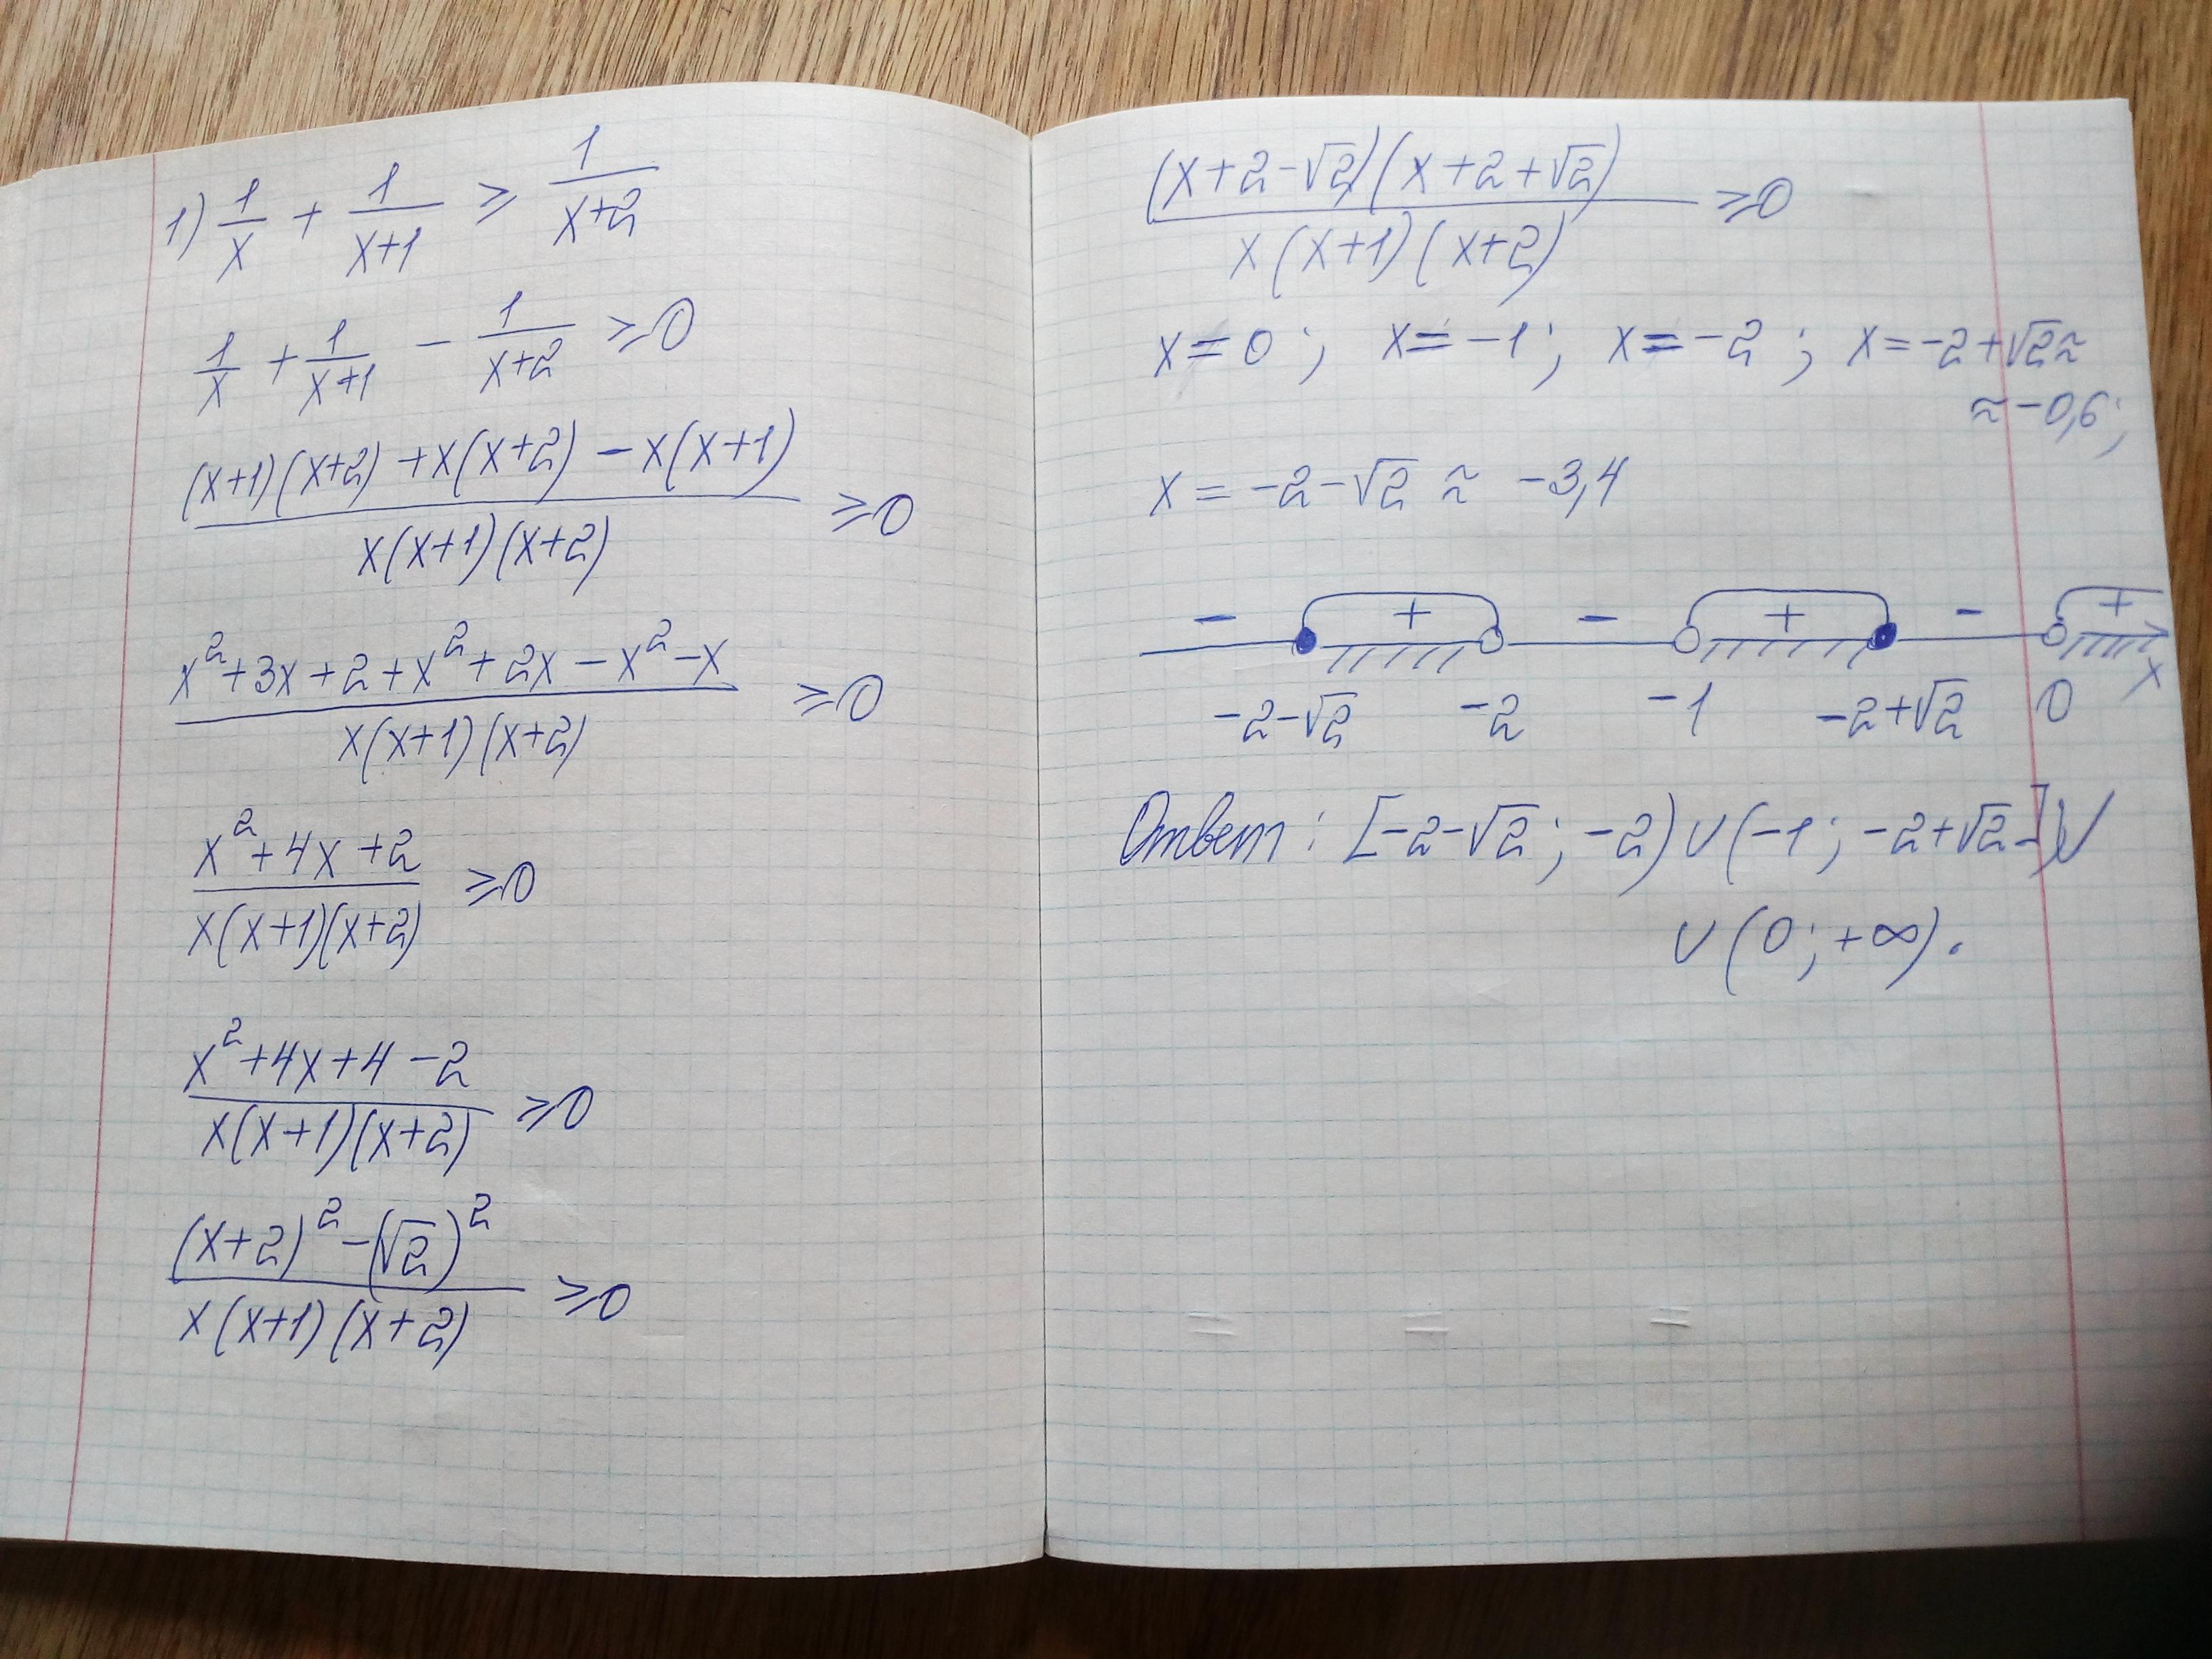 1) 1/x + 1/(x+1) ⩾ 1/(x+2)
1/x + 1/(x+1) − 1/(x+2) ⩾ 0
((x+1)(x+2) + x(x+2) − x(x+1))/(x(x+1)(x+2)) ⩾ 0
(x² + 3x + 2 + x² + 2x − x² − x)/(x(x+1)(x+2)) ⩾ 0
(x² + 4x + 2)/(x(x+1)(x+2)) ⩾ 0
(x² + 4x + 4 − 2)/(x(x+1)(x+2)) ⩾ 0
((x+2)² − (√2)²)/(x(x+1)(x+2)) ⩾ 0
((x+2−√2)(x+2+√2))/(x(x+1)(x+2)) ⩾ 0
x = 0; x = −1; x = −2; x = −2+√2 ≈
≈ −0,6;
x = −2−√2 ≈ −3,4
− + − + − +
−2−√2 −2 −1 −2+√2 0 x
Ответ: [−2−√2; −2) ∪ (−1; −2+√2] ∪
∪ (0; +∞).